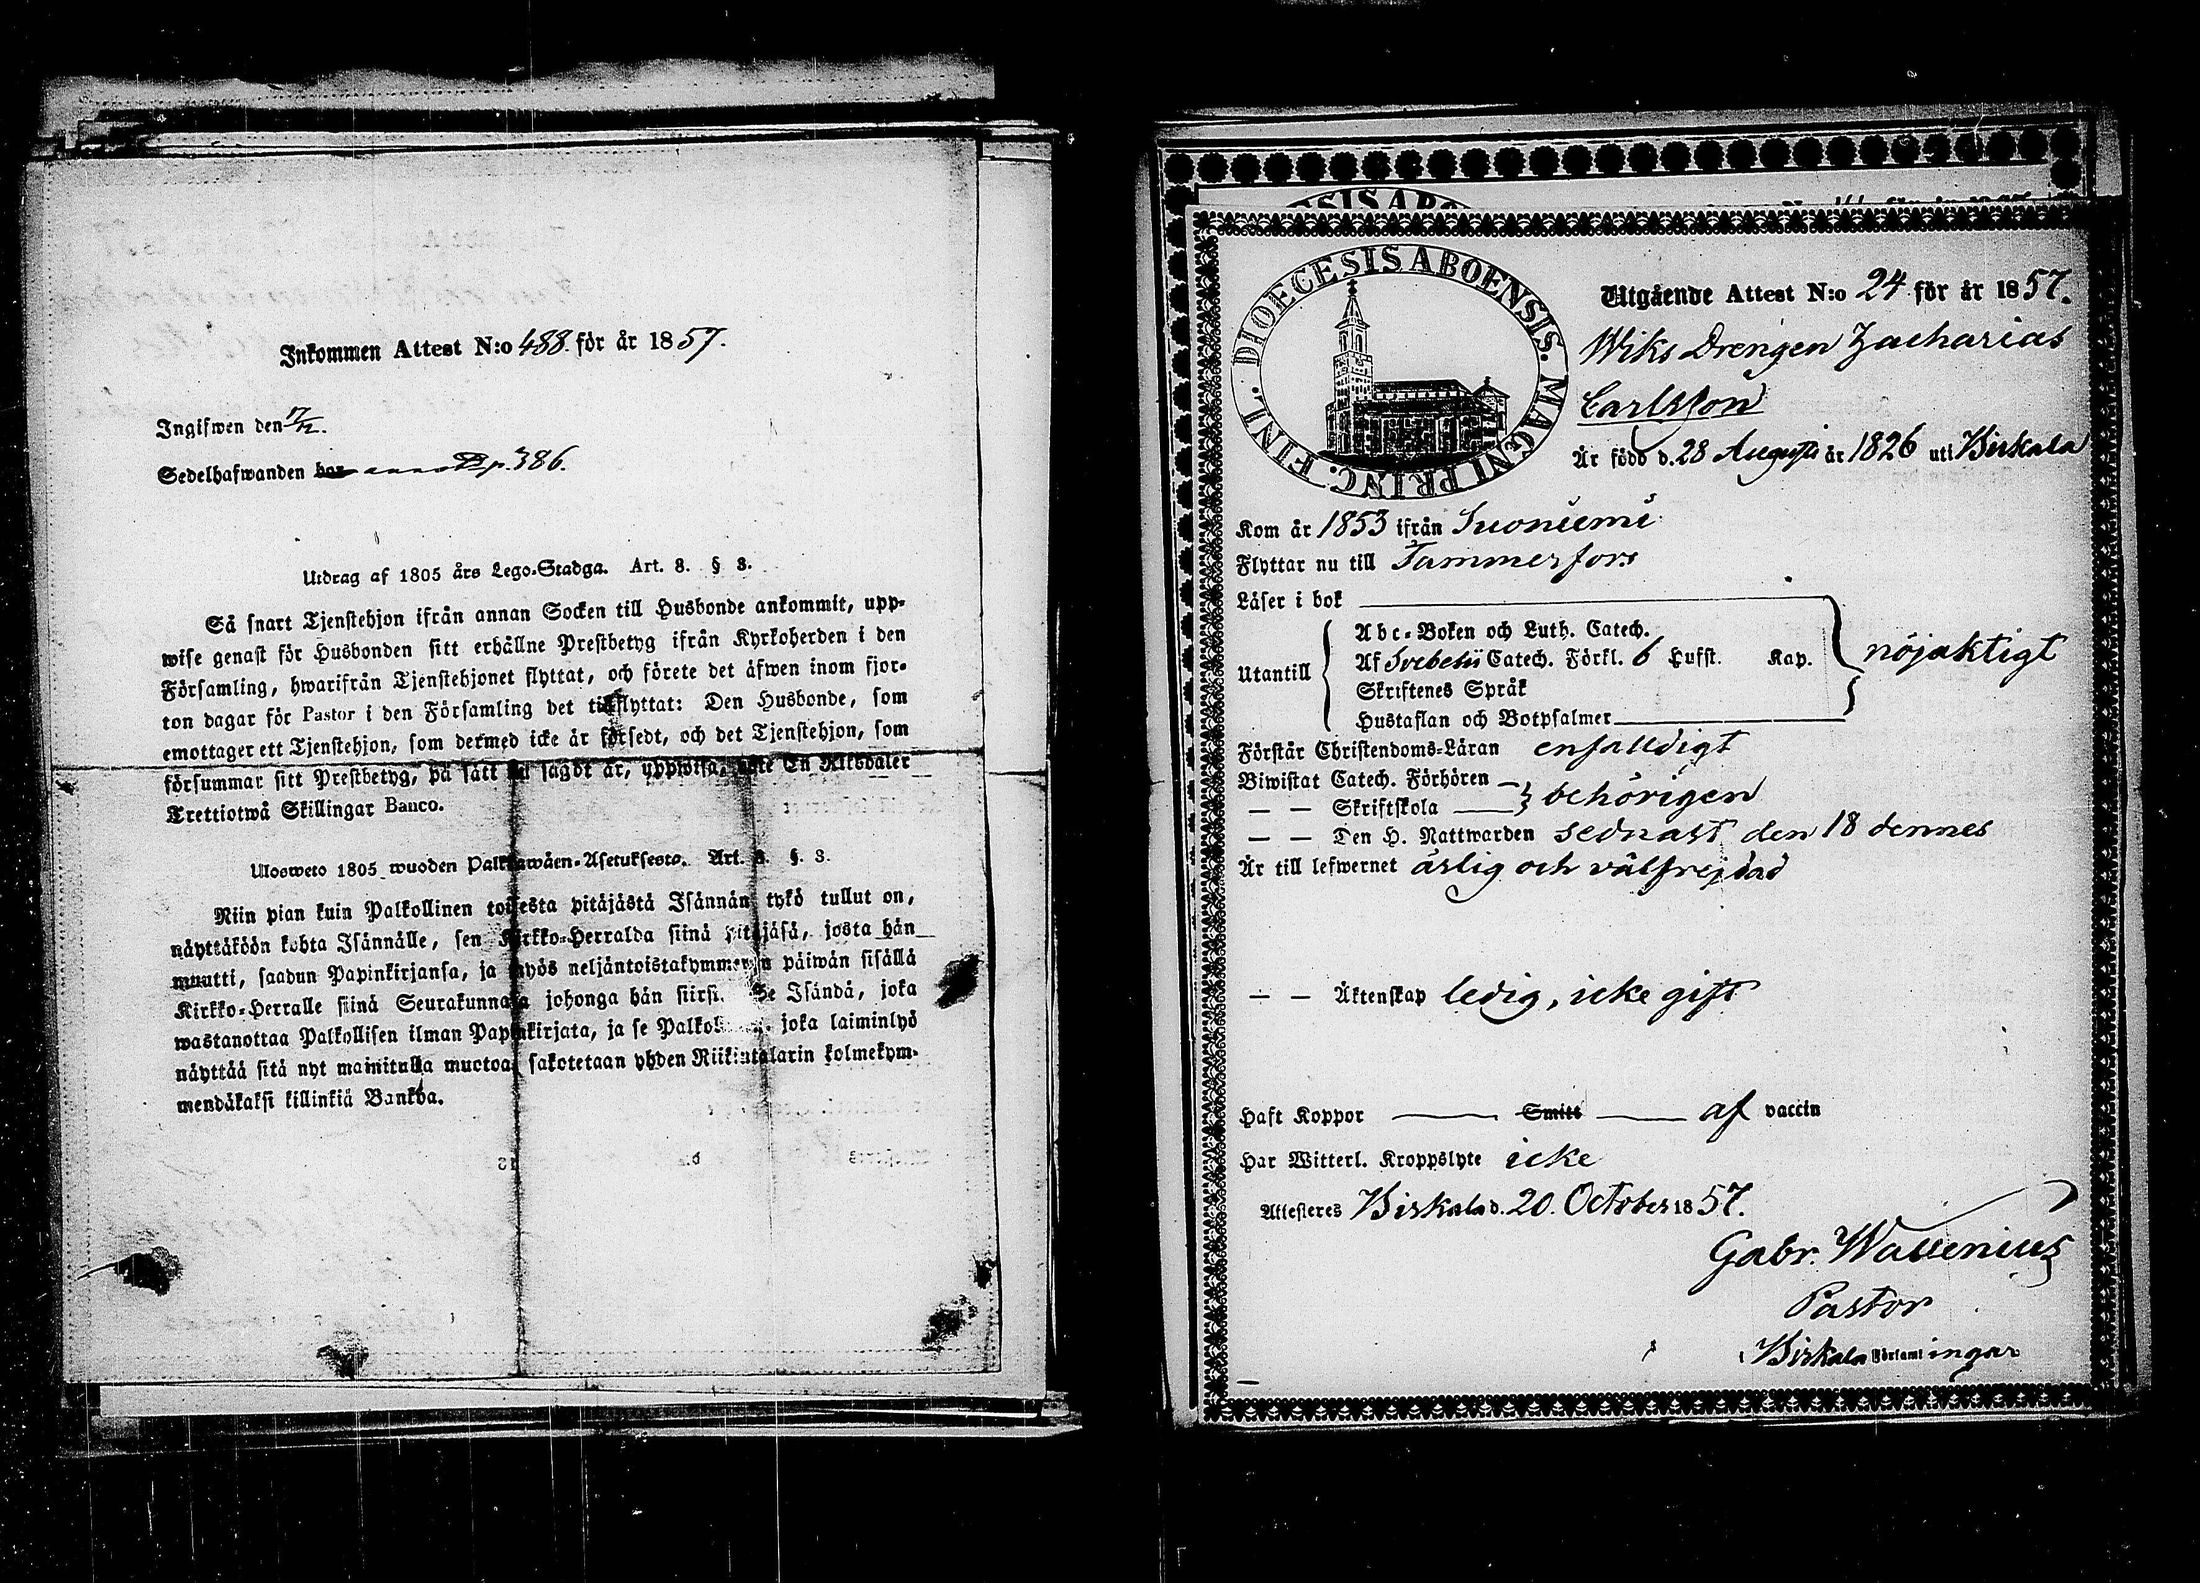 Inkommen Attest N:o 488. för år 1857.
Ingifwen den 17/12.
Sedelhafwanden bor anno p. 386.
Utdrag af 1805 års Lego-Stadga. Art. 8. § 3.
Så snart Tjenstehjon ifrån annan Socken till Husbonde ankommit, upp-
wise genast för Husbonden sitt erhållne Prestbetyg ifrån Kyrkoherden i den
Församling, hwarifrån Tjenstehjonet flyttat, och förete det äfwen inom fjor-
ton dagar för Pastor i den Församling det tillflyttat: Den Husbonde, som
emottager ett Tjenstehjon, som dermed icke är försedt, och det Tjenstehjon, som
försummar sitt Prestbetyg, på sätt nu sagdt är, uppwisa, böte En Riksdaler
Trettiotwå Skillingar Banco.
Ulosweto 1805 wuoden Palkkawäen-Asetuksesta. Art. 8. §. 3.
Niin pian kuin Palkollinen toisesta pitäjästä Isännän tykö tullut on,
näyttäköön kohta Isännälle, sen Kirkko-Herralda siinä pitäjäsä, josta hän
muutti, saadun Papinkirjansa, ja myös neljäntoistakymmenen päiwän sisällä
Kirkko-Herralle siinä Seurakunnasa johonga hän siirsi. Se Isändä, joka
wastanottaa Palkollisen ilman Papinkirjata, ja se Palkollinen joka laiminlyö
näyttää sitä nyt mainitulla muotoa, sakotetaan yhden Riikintalarin kolmekym-
mendäkaksi killinkiä Bankoa.
DIOECESIS ABOENSIS. MAGNI PRINC. FINL.
Utgående Attest N:o 24 för år 1857.
Wiks Drengen Zacharias
Carlsson
Är född d. 28 Augusti år 1826 uti Birkala
Kom år 1853 ifrån Suoniemi
Flyttar nu till Tammerfors
Läser i bok
Utantill
Abc-Boken och Luth. Catech.
Af Svebelii Catech. Förkl. 6 Hufst. Kap.
Skriftenes Språk
Hustaflan och Botpsalmer
nöjaktigt
Förstår Christendoms-Läran enfalldigt
Biwistat Catech. Förhören
— — Skriftskola behörigen
— — Den H. Nattwarden sednast den 18 dennes
Är till lefwernet ärlig och välfrejdad
— — Äktenskap ledig, icke gift
Haft Koppor Smitt af vaccin
Har Witterl. Kroppslyte icke
Attesteres Birkala d. 20. October 1857.
Gabr. Wallenius
Pastor
i Birkala Församl ingar